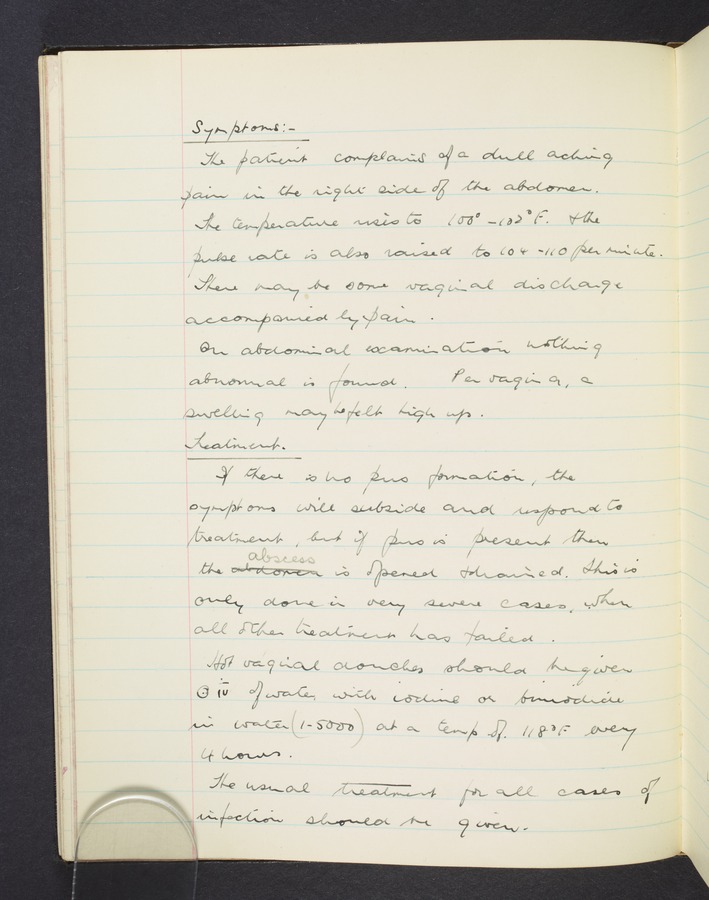 Symptoms:-
The patient complains of a dull aching
pain in the right side of the abdomen.
The temperature rises to 100° - 102° F. & the
pulse rate is also raised to 104 - 110 per minute.
There may be some vaginal discharge
accompanied by pain.
On abdominal examination nothing
abnormal is found. Per vagina, a
swelling may be felt high up.
Treatment.
If there is no pus formation, the
symptoms will subside and respond to
treatment, but if pus is present then
abscess
the abdomen is opened & drained. This is
only done in very severe cases, when
all other treatment has failed.
Hot vaginal douches should be given
iv of water with iodine or biniodide
in water (1-5000) at a temp of. 118°F every
4 hours.
The usual treatment for all cases of
infection should be given.